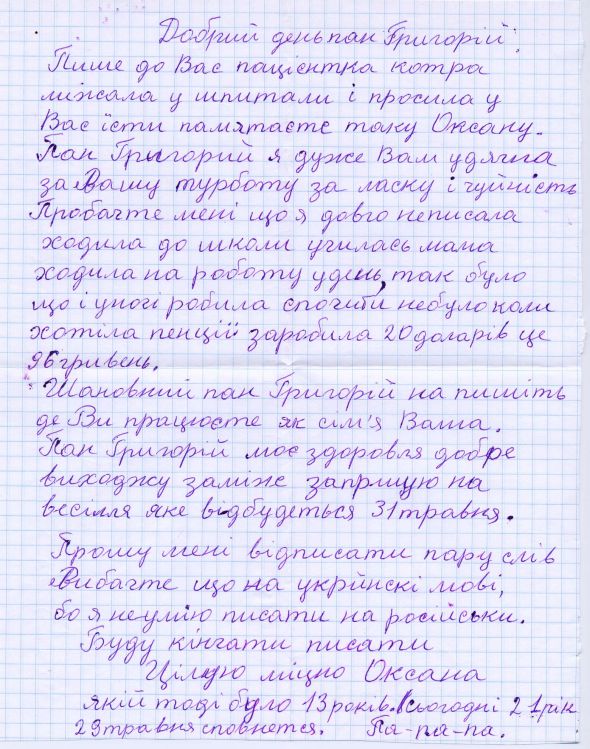 Добрий день пан Григорій!
Пише до Вас пацієнтка котра
лижала у шпитали і просила у
Вас їсти памятаєте таку Оксану.
Пан Григорий я дуже Вам удячна
за Вашу турботу за ласку і чуйність
Пробачте мені що я довго неписала
ходила до школи училась мама
ходила на роботу удень, так було
що і уночі робила спочити небуло коли
хотіла пенції заробила 20 доларів це
96 гривень.
Шановний пан Григорій на пишіть
де Ви працюєте як сім'я Ваша.
Пан Григорій моє здоровля добре
виходжу заміж запршую на
весілля яке відбудеться 31 травня.
Прошу мені відписати пару слів
Вибачте що на укрїнскі мові,
бо я неумію писати на російськи.
Буду кінчати писати
Цілую міцно Оксана
якій тоді було 13 років. Сьогодні 21 рік
29 травня сповнется. Па-па-па.